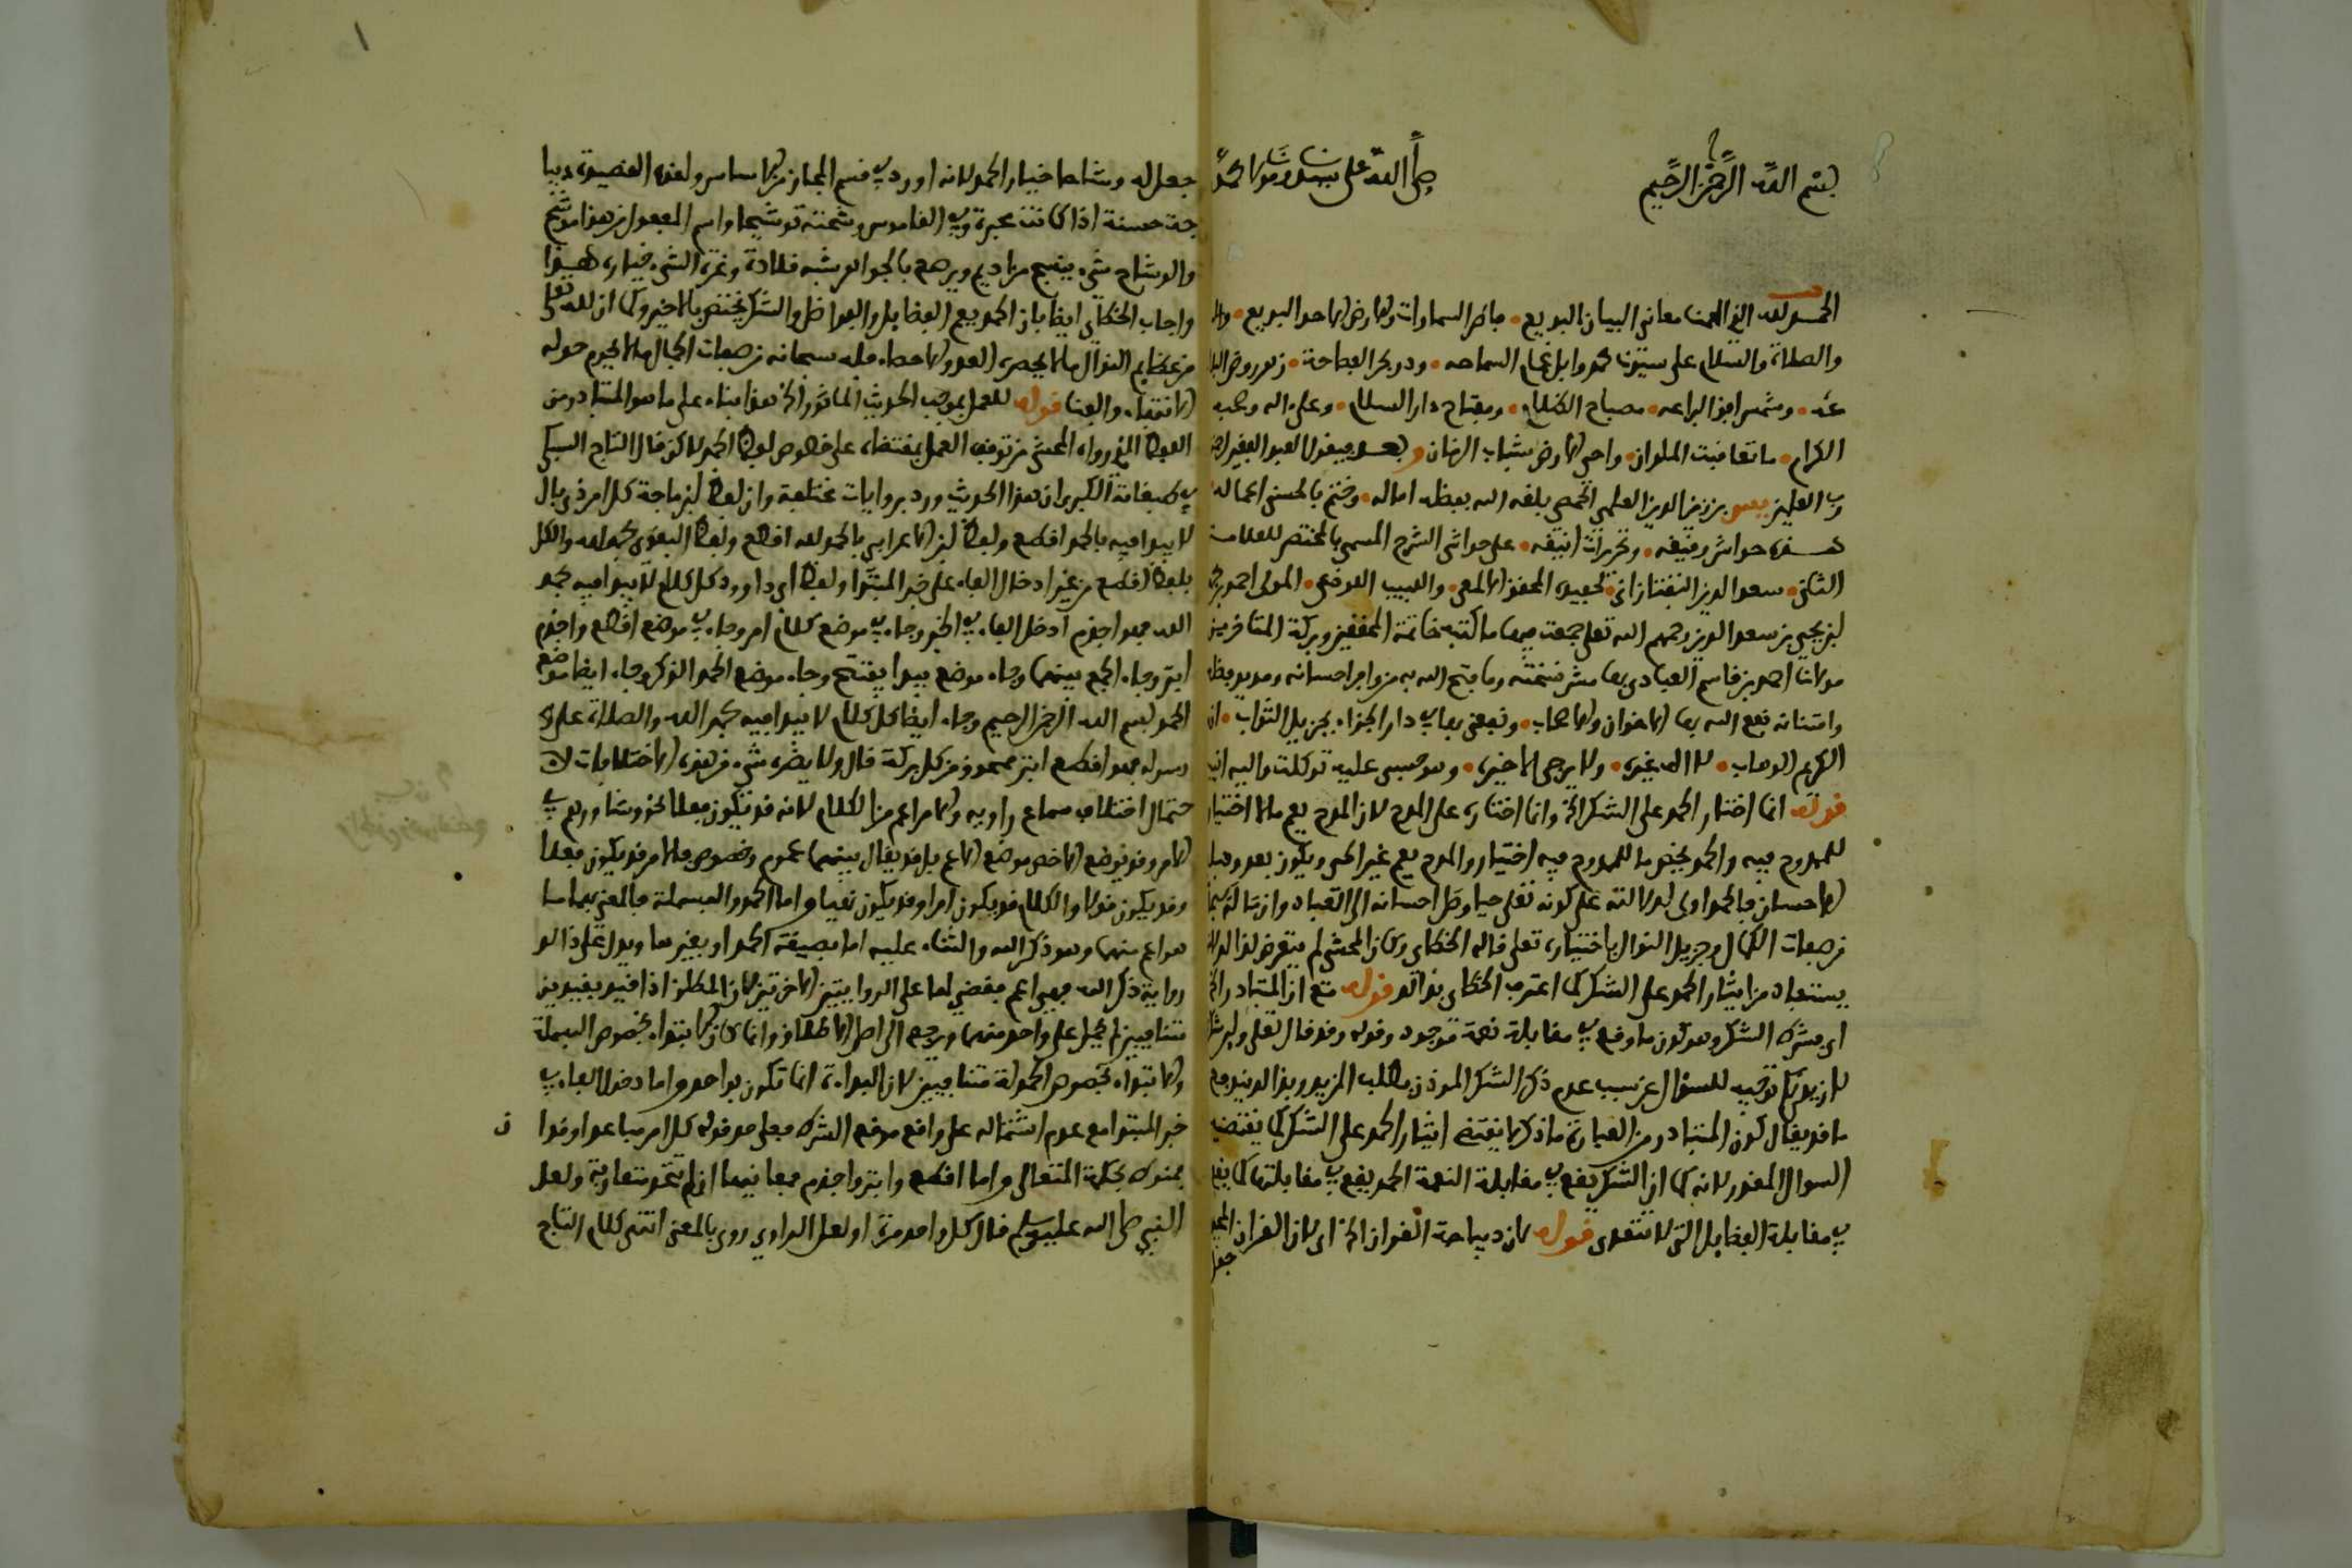 بسم الله الرحمن الرحيم
صلى الله على سيدنا ومولانا محمد
الحمد لله الذي الهمنا معاني البيان البديع • فاطر السماوات والارض الاحد البديع •
والصلاة والسلام على سيدنا محمد وابل غمام السماحه • ودر بحر الفصاحة • زهر روض
وشمس افق البراعه • مصباح الظلام • ومفتاح دار السلام • وعلى اله وصحبه
الكرام • ما تعاقبت الملوان • واحي الارض وبعد فيقول العبد الفقير
رب العلمين يس بن زين الدين العليمي الحمصي بلغه الله بفضله اماله • وختم بالحسنى اعماله
هذه حواش رقيقه • وتحريرات انيقه • على حواشي الشرح المسمى بالمختصر للعلامة
الثاني • سعد الدين التفتازاني لحفيده المحقق الالمعي • واللبيب اللوذعي • المولى احمد بن
ابن يحيى بن سعد الدين رحمهم الله تعلى جمعت فيها ما كتبه خاتمة المحققين وبركة المتاخرين
مولانا احمد بن قاسم العبادي بهامش نسخته وما فتح الله به من وافر احسانه ومديد فضله
وامتنانه نفع الله بها الاخوان والاصحاب • ونفعني بها في دار الجزاء بجزيل الثواب •
الكريم الوهاب • لا اله غيره • ولا يرجى الا خيره • وهو حسبي عليه توكلت واليه انيب
قوله انما اختار الحمد على الشكر الخ وانما اختاره على المدح لان المدح يعم ما لا اختيار
للممدوح فيه والحمد يختص بما للممدوح فيه اختيار والمدح يعم غير الحي ويكون بعد وقبل
الاحسان فالحمد اولى لدلالته على كونه تعلى حيا وصل احسانه الى العباد وان
من صفات الكمال وجزيل النوال باختياره تعلى قاله الخطاي وكان المحشي لم يتعرض لهذا
يستفاد من ايثار الحمد على الشكر كما اعترف الخطاي بذالك قوله مع ان المتبادر الخ
اي بشرك الشكر وهو كون ما وقع في مقابلة نعمة موجود وقوله وقد قال تعلى
لازيدنكم توجيه للسؤال عن سبب عدم ذكر الشكر الموذن بطلب المزيد وبذالك يندفع
ما قد يقال كون المتبادر من العبارة ما ذكر لا يقتضي ايثار الحمد على الشكر كما يقتضيه
السوال المقدر لانه كما ان الشكر يقع في مقابلة النعمة الحمد يقع في مقابلتها كما يقع
في مقابلة الفضايل التي لا تتعدى قوله لان ديباجة القران الخ اي لان القران المجيد
جعل
جعل له وشاحا خيار الحمد لانه اورد في قسم المجاز من الاساس ولهذه القصيدة
جة حسنة اذا كانت محبرة وفي القاموس وشحته توشيحا واسم المفعول من هذا موشح
والوشاح شيء ينسج من اديم ويرصع بالجواهر شبه قلادة وغرة الشيء خياره هذا
واجاب الخطاي ايضا بان الحمد يعم الفضايل والفواضل والشكر يختص بالاخير وكما ان لله تعلى
من عظايم النوال ما لا يحصره العد والاحصاء فله سبحانه من صفات الجمال ما لا يحوم حوله
الانتهاء والفنا قوله للعمل بموجب الحديث الماثور الخ هذا بناء على ما هو المتبادر من
اللفظ الذي رواه المحشي من توقف العمل بمقتضاه على خصوص لفظ الحمد لاكن قال التاج السبكي
في طبقاته الكبرى ان هذا الحديث ورد بروايات مختلفة وان لفظ ابن ماجة كل امر ذي بال
لا يبدا فيه بالحمد اقطع ولفظ ابن الاعرابي بالحمد لله اقطع ولفظ البغوي بحمد الله والكل
بلفظ اقطع من غير ادخال الفاء على خبر المبتدا ولفظ ابي داوود كل كلام لا يبدا فيه بحمد
الله فهو اجذم ادخل الفاء في الخبر وجاء في موضع كلام امر وجاء في موضع اقطع واجذم
ابتر وجاء الجمع بينهما وجاء موضع يبدا يفتتح وجاء موضع الحمد الذكر وجاء ايضا موضع
الحمد بسم الله الرحمن الرحيم وجاء ايضا كل كلام لا يبدا فيه بحمد الله والصلاة على
رسوله فهو اقطع ابتر ممحوق من كل بركة قال ولا يضره شيء من هذه الاختلافات لا
حتمال اختلاف سماع راويه والامر اعم من الكلام لانه قد يكون فعلا نحو وشاورهم في
الامر وقد يوضع الاخص موضع الاعم بل قد يقال بينهما عموم وخصوص فالامر قد يكون فعلا
وقد يكون قولا والكلام قد يكون امرا وقد يكون نهيا واما الحمد والبسملة فالمعني بهما ما
هو اعم منهما وهو ذكر الله والثناء عليه اما بصيغة الحمد او بغيرها ويدل على ذالك
رواية ذكر الله فهي اعم فقضي لها على الروايتين الاخرتين لان المطلق اذا قيد بقيدين
متنافيين لم يحمل على واحد منهما ورجع الى اصل الاطلاق وانما كان الابتداء بخصوص البسملة
والابتداء بخصوص الحمدلة متنافيين لان البداءة انما تكون بواحد واما دخول الفاء في
خبر المبتدا مع عدم اشتماله على واقع موقع الشرط
بحكمة المتعالي واما اقطع وابتر واجذم فمعانيها ان لم تتحد متقاربة ولعل
النبي صلى الله عليه وسلم قال كل واحد مرة او لعل الراوي روى بالمعنى انتهى كلام التاج